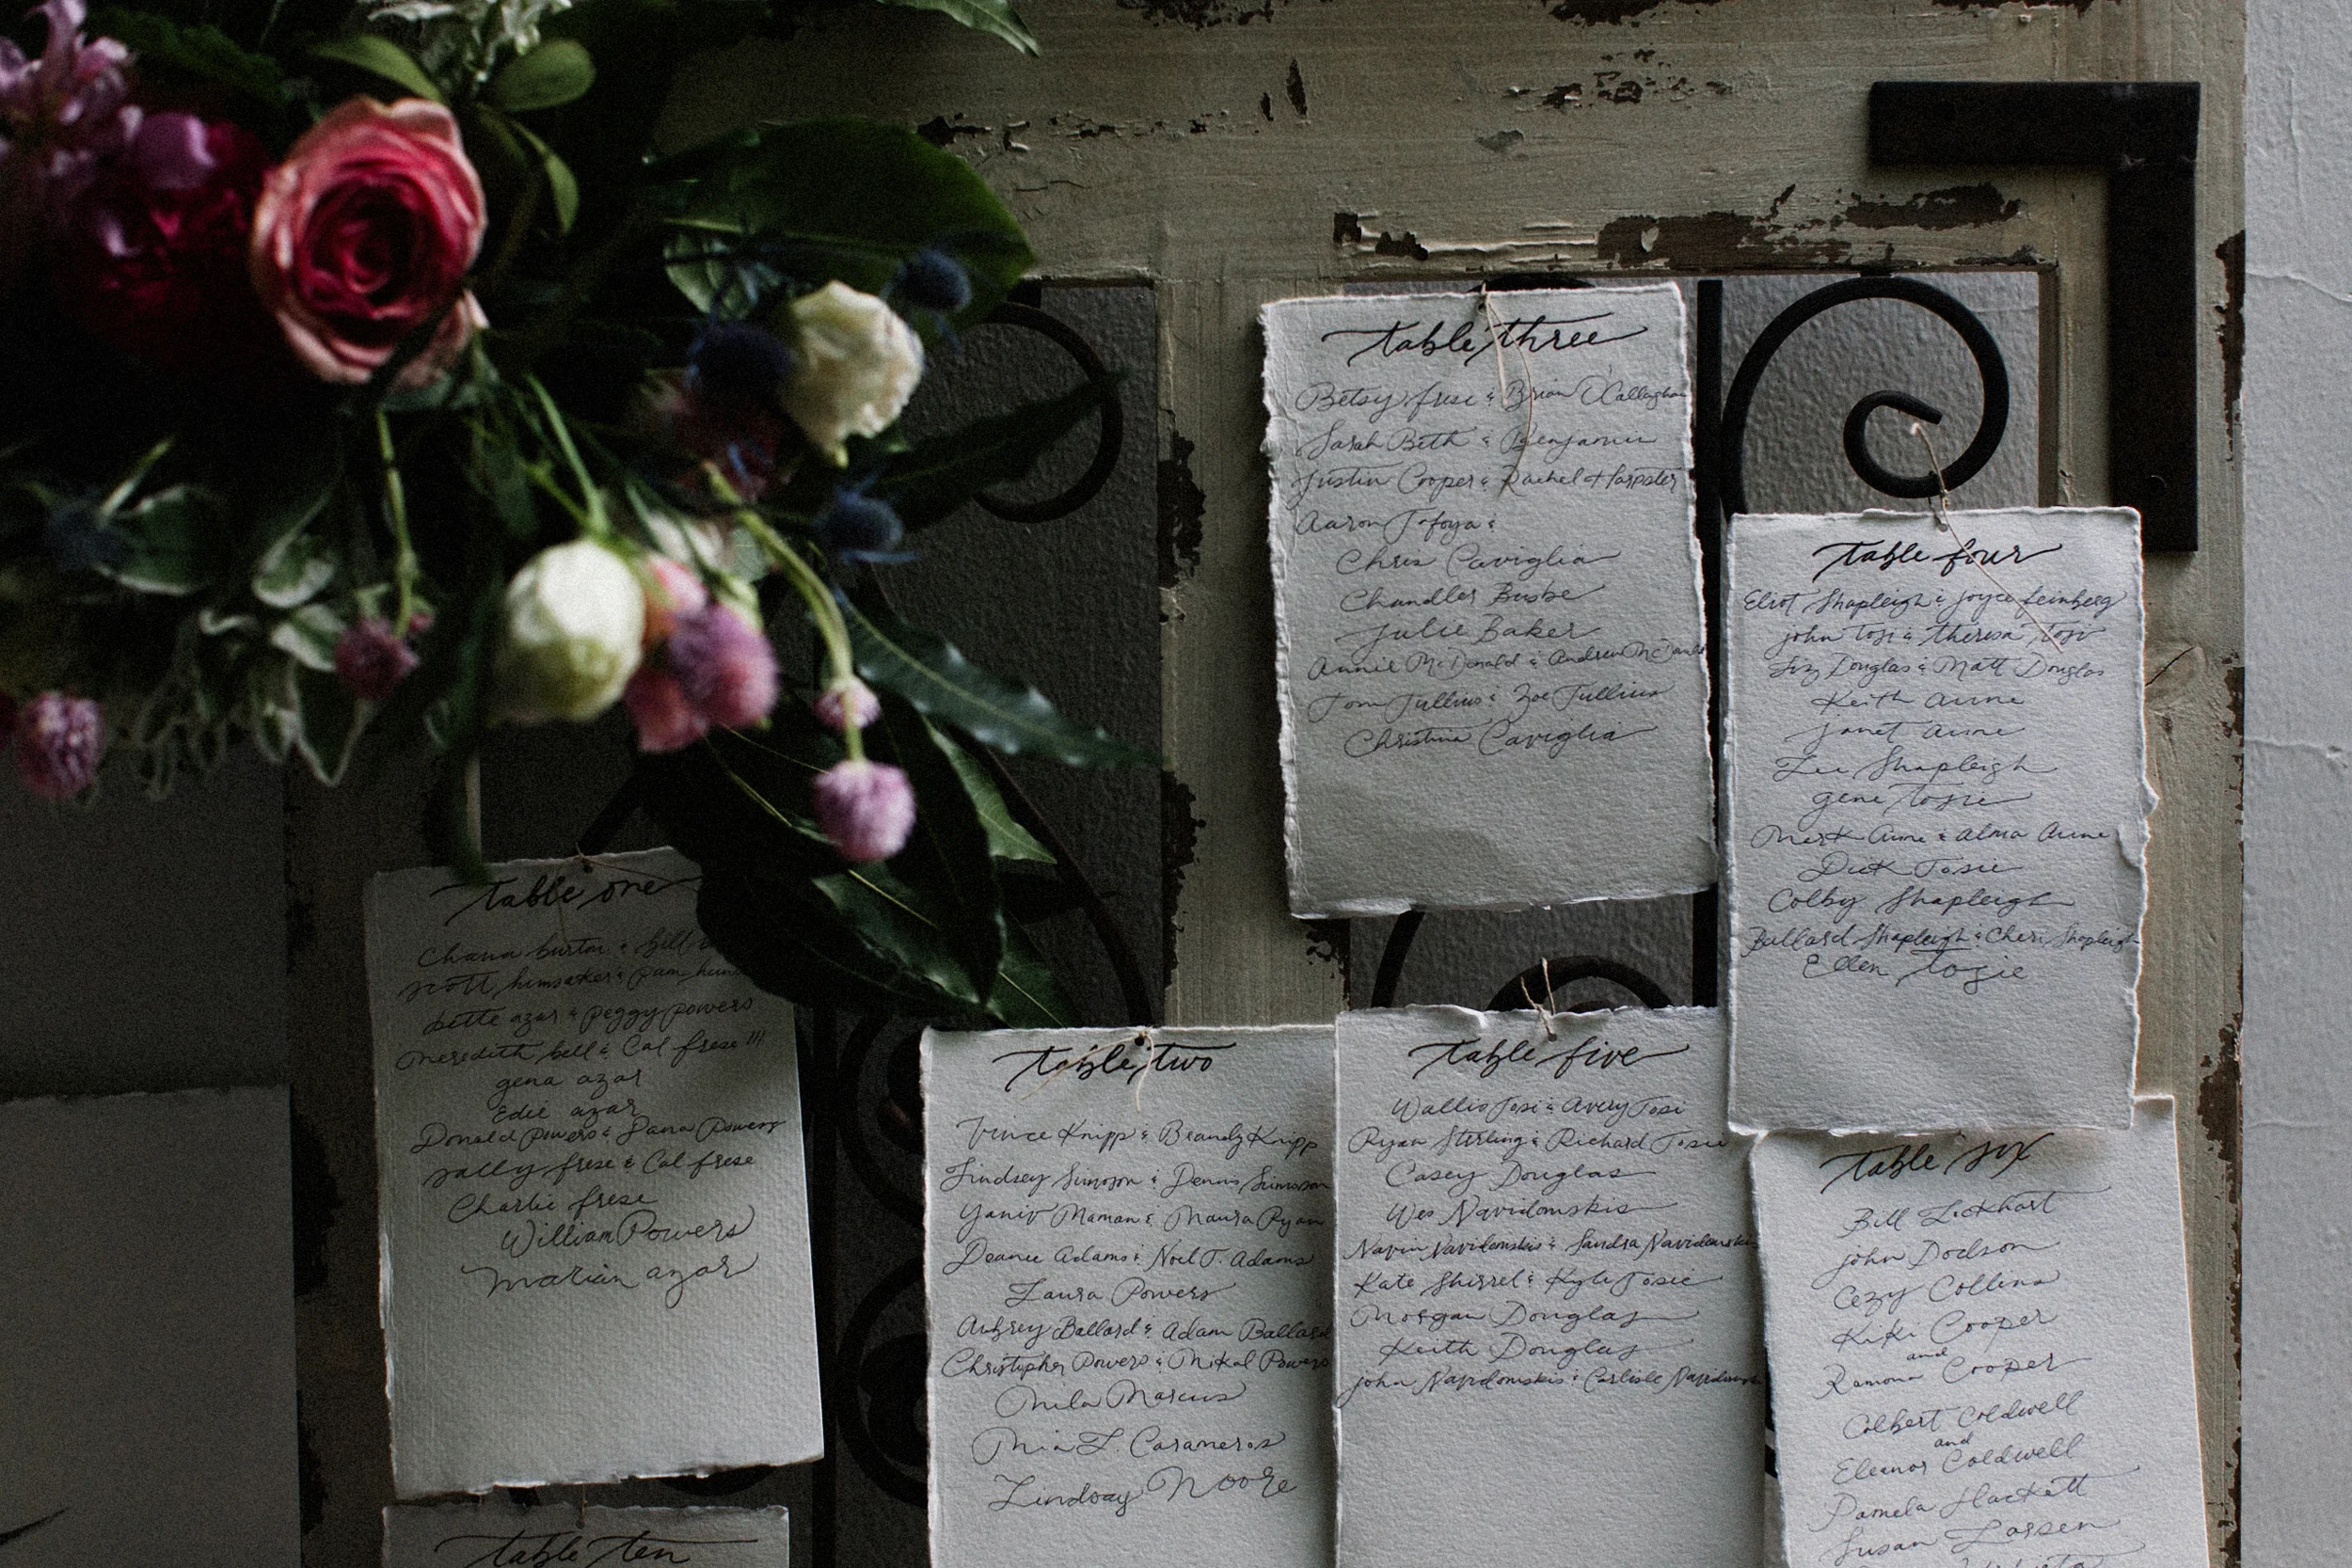 table one
Chana burton & bill
scott hunsaker & pam
bette azar & peggy powers
meredith bell & Cal frese !!!
gena azar
Edie azar
Donald Powers & Dana Powers
sally frese & Cal frese
Charlie frese
William Powers
marian azar
table ten
table two
Vince Knipp & Brandy Knipp
Lindsey Simpson & Dennis Simpson
Yaniv Maman & Maura Ryan
Deanee Adams & Noel T. Adams
Laura Powers
Aubrey Ballard & Adam Ballard
Christopher Powers & Mikal Powers
Mila Marcus
Mia L. Carameros
Lindsay Moore
table three
Betsy frese & Brian O'Callaghan
Sarah Beth & Benjamin
Justin Cooper & Rachel Harpster
Aaron Tafoya &
Chris Caviglia
Chandler Busbe
Julie Baker
Annie McDonald & Andrew
Tom Tullius & Zoe Tullius
Christina Caviglia
table four
Eliot Shapleigh & Joyce feinberg
john Tosi & theresa Tosi
Liz Douglas & Matt Douglas
Keith Aune
janet aune
Lee Shapleigh
gene tosie
Mark Aune & Alma Aune
Dick Tosie
Colby Shapleigh
Ballard Shapleigh & Cheri Shapleigh
Ellen Tosie
table five
Wallis Tosi & Avery Tosi
Ryan Stirling & Richard Tosie
Casey Douglas
Wes Navidomskis
Navin Navidomskis & Sandra Navidomskis
Kate Shirrel & Kyle Tosie
Morgan Douglas
Keith Douglas
john Navidomskis & Carlisle
table six
Bill Lockhart
john Dodson
Cezy Collins
Kiki Cooper
and
Ramona Cooper
Colbert Coldwell
and
Eleanor Coldwell
Pamela Hackett
Susan Larsen